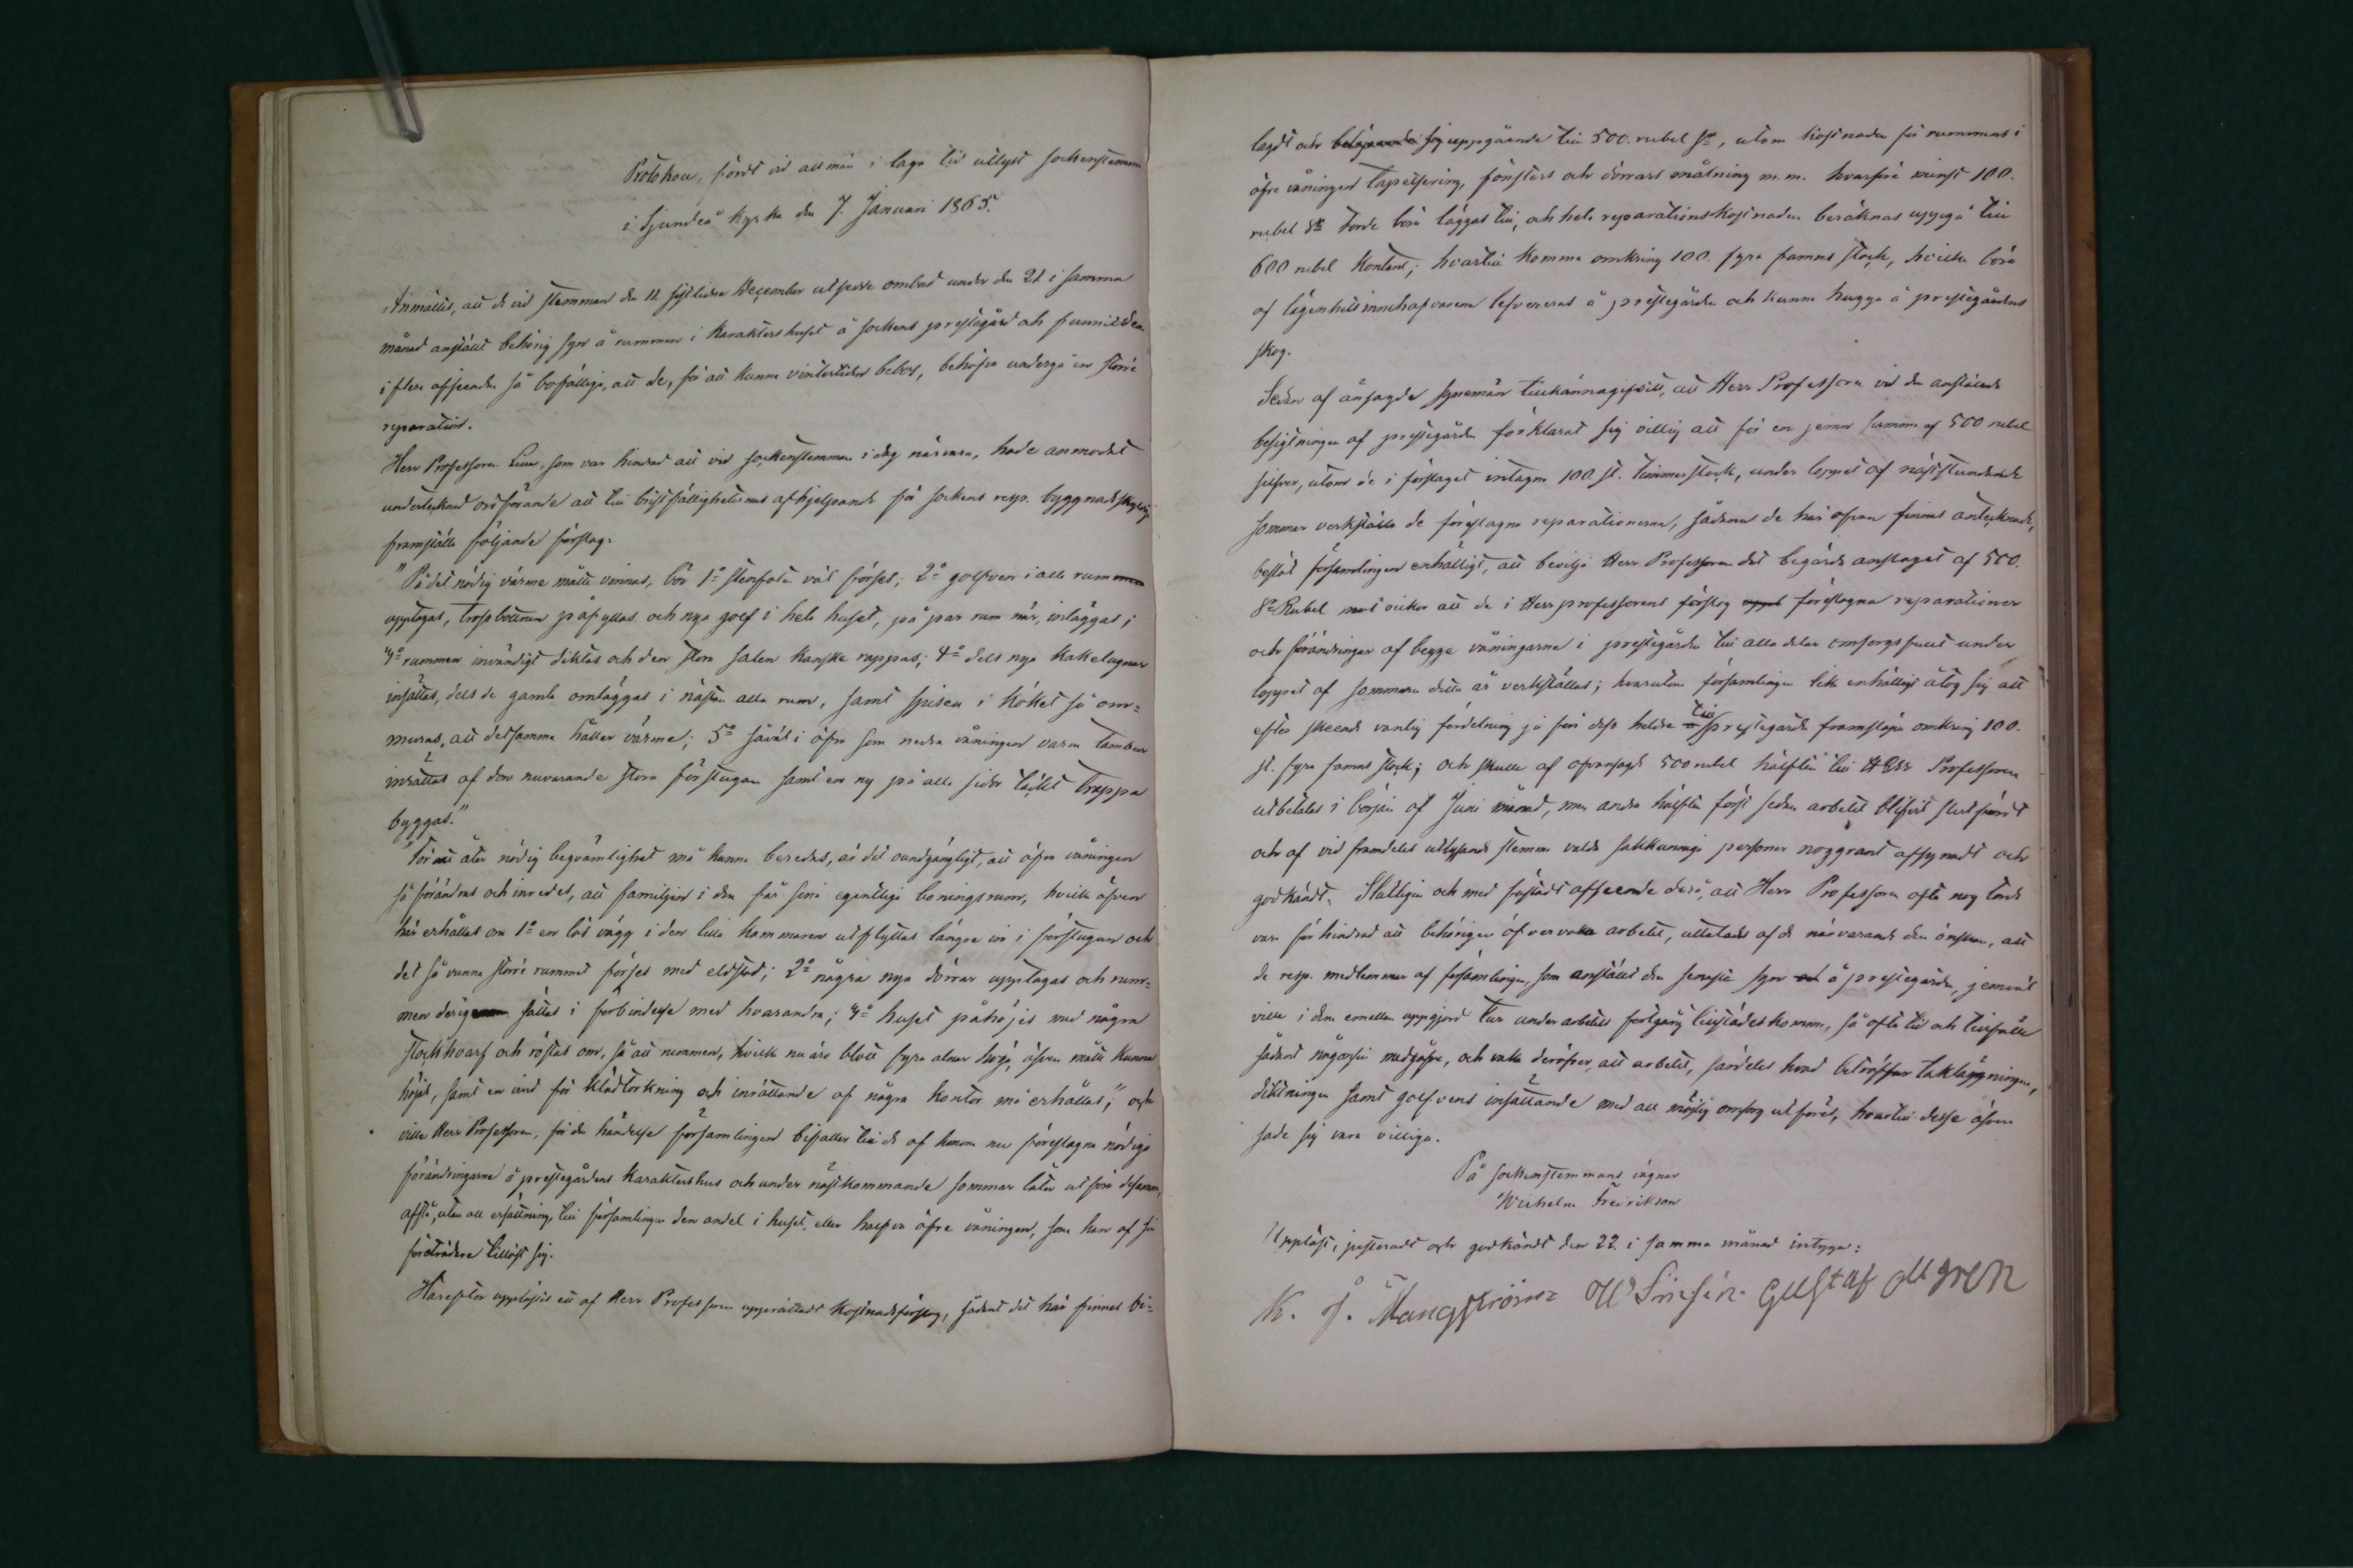 Protokoll, fördt vid allmän i laga tid utlyst sockenstemma
i Sjundeå kyrka den 7. Januari 1865.
Anmältes, att de vid stemman den 11 sistlidne December utsedde ombud under den 21 i samma
månad anställt behörig syn å rummen i karaktershuset å sockens prestegård och funnit dem
i flera afseenden så bofälliga, att de, för att kunna vintertider bebos, behöfva undergå en större
reparation.
Herr Professoren, som var hindrad att vid sockenstemman i dag närvara, hade anmodat
undertecknad ordförande att till bristfälligheternas afhjelpande för sockens resp. byggnadsskyldige
framställa följande förslag:
"På det nödig värme måtte vinnas, bör 1º stenfoten väl förses; 2º golfven i alla rummen
upptagas, trossbottnen påfyllas och nya golf i hela huset, på par rum när, inläggas;
3º rummen invändigt diktas och den stora salen kanske rappas; 4º dels nya kakelugnar
insättas, dels de gamla omläggas i nästan alla rum, samt spisen i köket så om=
muras, att detsamma håller värme; 5º såväl i öfra som nedra våningen varm tambur
inrättas af den nuvarande stora förstugan samt en ny på alla sidor täckt trappa
byggas."
"För att åter nödig beqvämlighet må kunna beredas, är det oundgängligt, att öfra våningen
så förändras och inredes, att familjen i den får sina egentliga boningsrum, hvilka äfven
här erhållas om 1º en lös vägg i den lilla kammaren utflyttas längre in i förstugan och
det så vunna större rummet förses med eldstad; 2º några nya dörrar upptagas och rum=
men derigenom sättas i förbindelse med hvarandra; 3º huset påhöjes med några
stockhvarf och röstas om, så att rummen, hvilka nu äro blott fyra alnar höga, äfven måtte kunna
höjas, samt en vind för klädtorkning och inrättande af några kontor må erhållas", och
ville Herr Professoren, för den händelse församlingen bifaller till de af honom nu föreslagna nödiga
förändringarne å prestegårdens karaktershus och under nästkommande sommar låter utföra desamma,
afstå, utan all ersättning, till församlingen den andel i huset, eller halfva öfre våningen, som han af sin
företrädare tillöst sig.
Härefter upplästes ett af Herr Professoren upprättadt kostnadsförslag, sådant det här finnes bi=
lagdt och belöpande sig uppgående till 500. rubel Sr, utom kostnaden för rummens i
öfre våningen tapetsering, fönsters och dörrars målning m.m. hvarföre minst 100.
rubel Sr torde böra läggas till, och hela reparationskostnaden beräknas uppgå till
600 rubel kontant; hvartill komma omkring 100. fyra famns stock, hvilka böra
af lägenhetsinnehafvarena lefvereras å prestegården och kunna huggas å prestegårdens
skog.
Sedan af ofvansagde synemän tillkännagifvits, att Herr Professoren vid den anställda
besigtningen af prestegården förklarat sig villig att för en jemn summa af 500 rubel
silfver, utom de i förslaget intagna 100 st. timmerstock, under loppet af näststundande
sommar verkställa de föreslagna reparationerna, sådana de här ofvan finnas antecknade,
beslöt församlingen enhälligt, att bevilja Herr Professoren det begärda anslaget af 500.
Sr Rubel med vilkor att de i Herr professorens förslag föreslagna reparationer
och förändringar af begge våningarne i prestegården till alla delar omsorgsfullt under
loppet af sommaren detta år verkställas; hvarutom församlingen lika enhälligt åtog sig att
efter skeende vanlig fördelning på före dess heldre till prestegården framsläpa omkring 100.
st. fyra famns stock; och skulle af ofvansagde 500 rubel hälften till Herr Professoren
utbetalas i början af Juni månad, men andra hälften först sedan arbetet blifvit slutfördt
och af vid framdeles utlysande stemma valde sakkunnige personer noggrant afsynadt och
godkändt. Slutligen och med fästadt afseende derå, att Herr Professoren ofta nog torde
vara förhindrad att behörigen öfvervaka arbetet, uttalades af de närvarande den önskan, att
de resp. medlemmar af församlingen, som anställt den senaste syn å prestegården, jemväl
ville i dem emellan uppgjord tur under arbetets fortgång tillstädeskomma, så ofta tid och tillfälle
sådant någonsin medgåfve, och vaka deröfver, att arbetet, särdeles hvad beträffar takläggningen,
diktningen samt golfvens insättande med all möjlig omsorg utföres, hvartill desse äfven
sade sig vara villiga.
På sockenstemmans vägnar
Wilhelm Fredrikson
Uppläst, justeradt och godkändt den 22. i samma månad intyga:
K. J. Mangström W Sirén Gustaf allgren